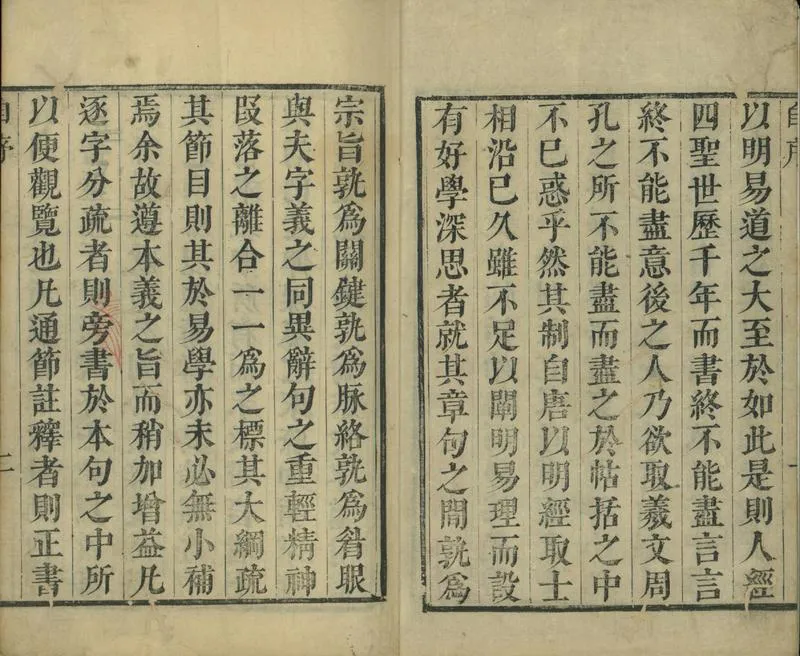 自序
以明易道之大至於如此是則人經
四聖世歷千年而書終不能盡言言
終不能盡意後之人乃欲取羲文周
孔之所不能盡而盡之於帖括之中
不已惑乎然其制自唐以明經取士
相沿已久雖不足以闡明易理而設
有好學深思者就其章句之閒孰為
一
宗旨孰為關鍵孰為脉絡孰為眢眼
與夫字義之同異辭句之重輕精神
段落之離合一一為之標其大綱疏
其節目則其於易學亦未必無小補
焉余故遵本義之旨而稍加增益凡
逐字分疏者則旁書於本句之中所
以便觀覽也凡通節註釋者則正書
自序
二